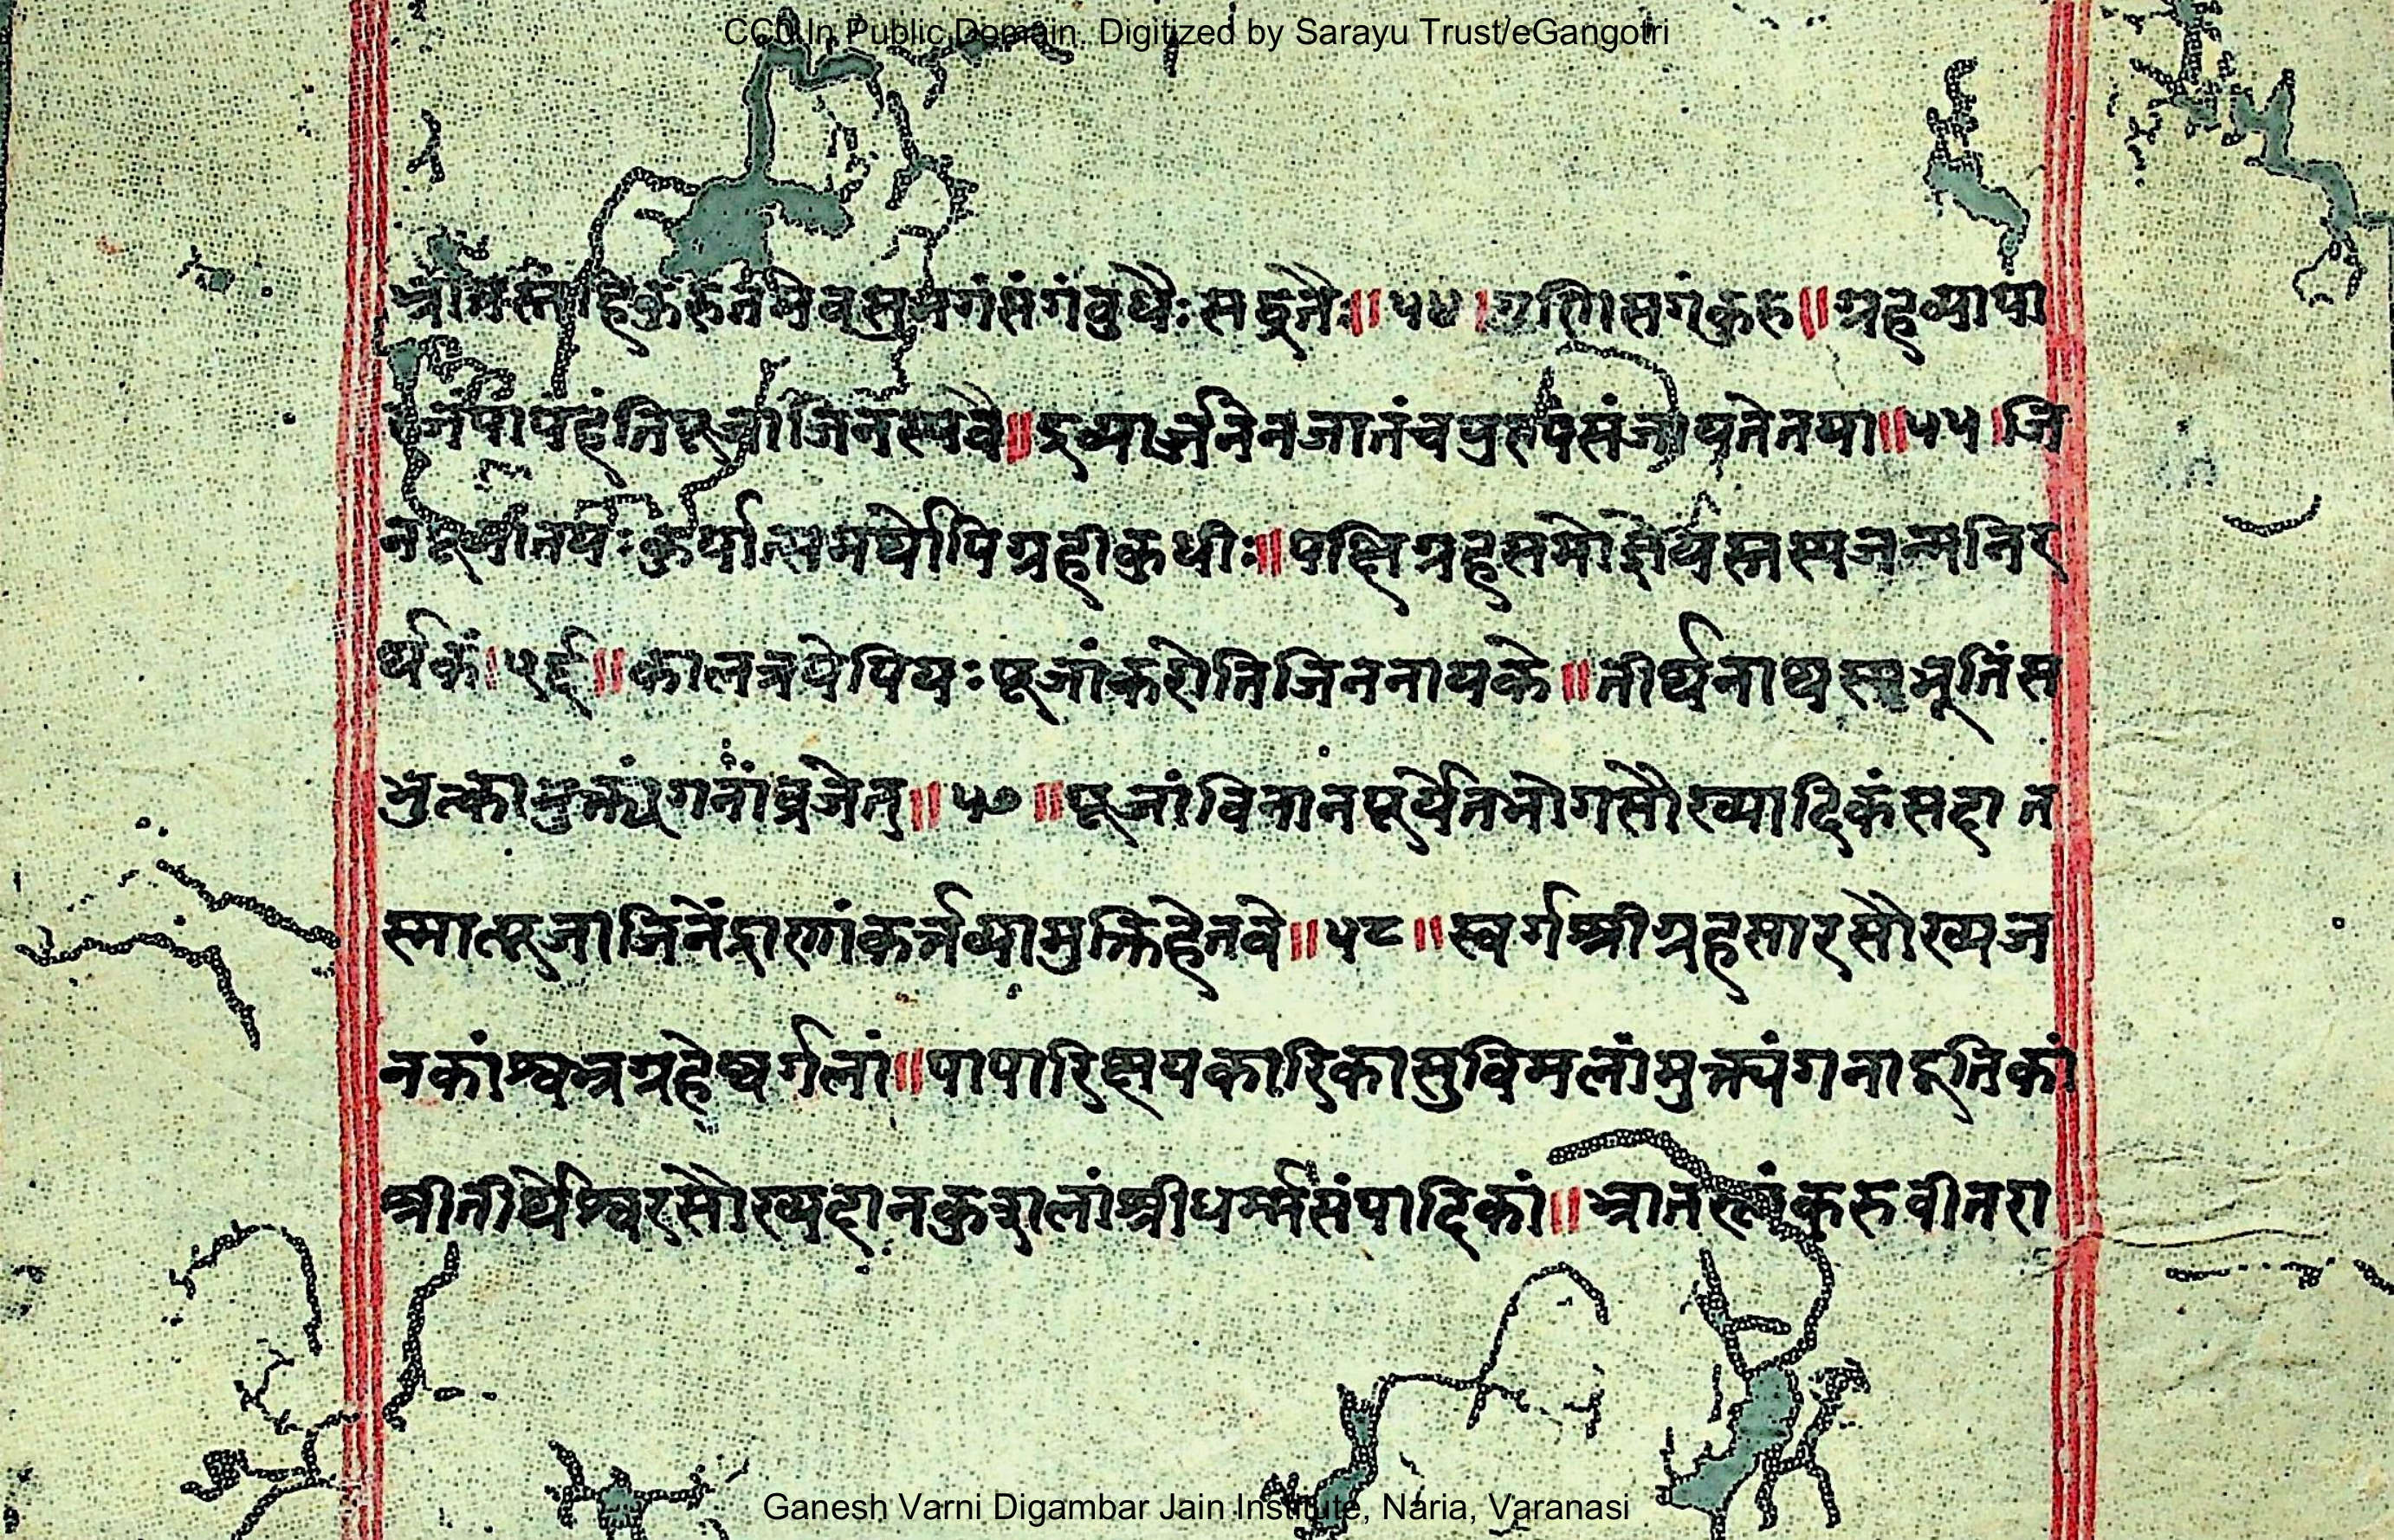 CC0 In Public Domain. Digitized by Sarayu Trust/eGangotri
संगं बुधैः सद्व्रतैः॥५४। संगं कुरु॥ग्रहव्यापा
पापं हंति पूजा जिनस्य वै॥द्रव्यार्जनेन जातं च पुरुषं संजायते तया॥५५।जि
कुर्यात्समर्थोपि ग्रही कुधीः॥पक्षिग्रहसमो ज्ञेयस्तस्य जन्म निर
र्थकं।५६॥कालत्रयेपि यः पूजां करोति जिननायके॥तीर्थनाथस्य भूतिं स
भुत्का मुक्त्यंगनां व्रजेत्॥५७॥पूजां विना न पूर्येत भोगसौख्यादिकं सदा त
स्मात्पूजा जिनेंद्राणां कर्तव्या मुक्तिहेतवे॥५८॥स्वर्गश्रीग्रहसारसौख्यज
नकां श्वभ्रग्रहेष्वर्गलां॥पापारिक्षयकारिका सुविमलां मुक्त्यंगनादूतिकां
श्रीतीर्थेश्वरसौख्यदानकुशलां श्रीधर्म्मसंपादिकां॥भ्रातस्त्वं कुरु वीतरा
Ganesh Varni Digambar Jain Institute, Naria, Varanasi